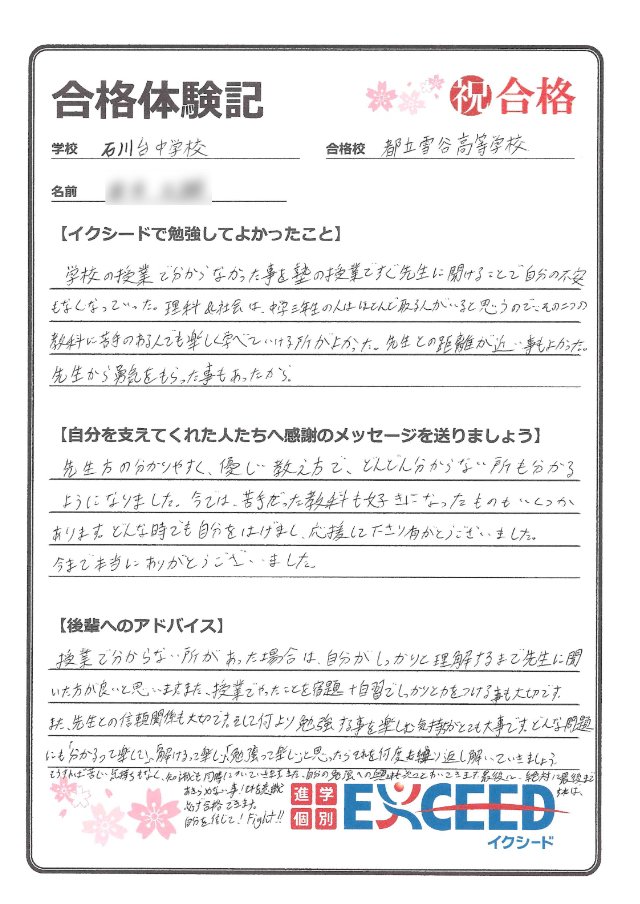 合格体験記
祝 合格
学校 石川台中学校
合格校 都立雪谷高等学校
名前
【イクシードで勉強してよかったこと】
学校の授業で分からなかった事を塾の授業ですぐ先生に聞けることで自分の不安
もなくなっていった。理科&社会は、中学三年生の人はほとんど取る人がいると思うので、その二つの
教科に苦手のある人でも楽しく学べていける所がよかった。先生との距離が近い事もよかった。
先生から勇気をもらった事もあったから。
【自分を支えてくれた人たちへ感謝のメッセージを送りましょう】
先生方の分かりやすく、優しい教え方で、どんどん分からない所も分かる
ようになりました。今では、苦手だった教科も好きになったものもいくつか
あります。どんな時でも自分をはげまし、応援して下さり有がとうございました。
今まで本当にありがとうございました。
【後輩へのアドバイス】
授業で分からない所があった場合は、自分がしっかりと理解するまで先生に聞
いた方が良いと思います。また、授業でやったことを宿題+自習でしっかりと力をつける事も大切です。
また、先生との信頼関係も大切です。そして何より勉強する事を楽しむ気持がとても大事です。どんな問題
にも「分かるって楽しい」、「解けるって楽しい」、「勉強って楽しい」と思ったらそれを何度も繰り返し解いていきましょう
そうすれば苦しい気持ちもなく、知識も同時についていきます。また、自分の勉強への
最後に、絶対に最後まで
あきらめない事!
必ず合格できます。
自分を信じて! Fight!!
進学
個別
EXCEED
イクシード